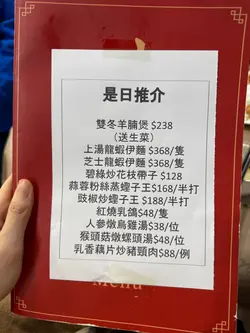 是日推介
雙冬羊腩煲 $238
（送生菜）
上湯龍蝦伊麵 $368/隻
芝士龍蝦伊麵 $368/隻
碧綠炒花枝帶子 $128
蒜蓉粉絲蒸蟶子王$168/半打
豉椒炒蟶子王 $188/半打
紅燒乳鴿$48/隻
人參燉烏雞湯$38/位
猴頭菇燉螺頭湯$48/位
乳香藕片炒豬頸肉$88/例
Menu